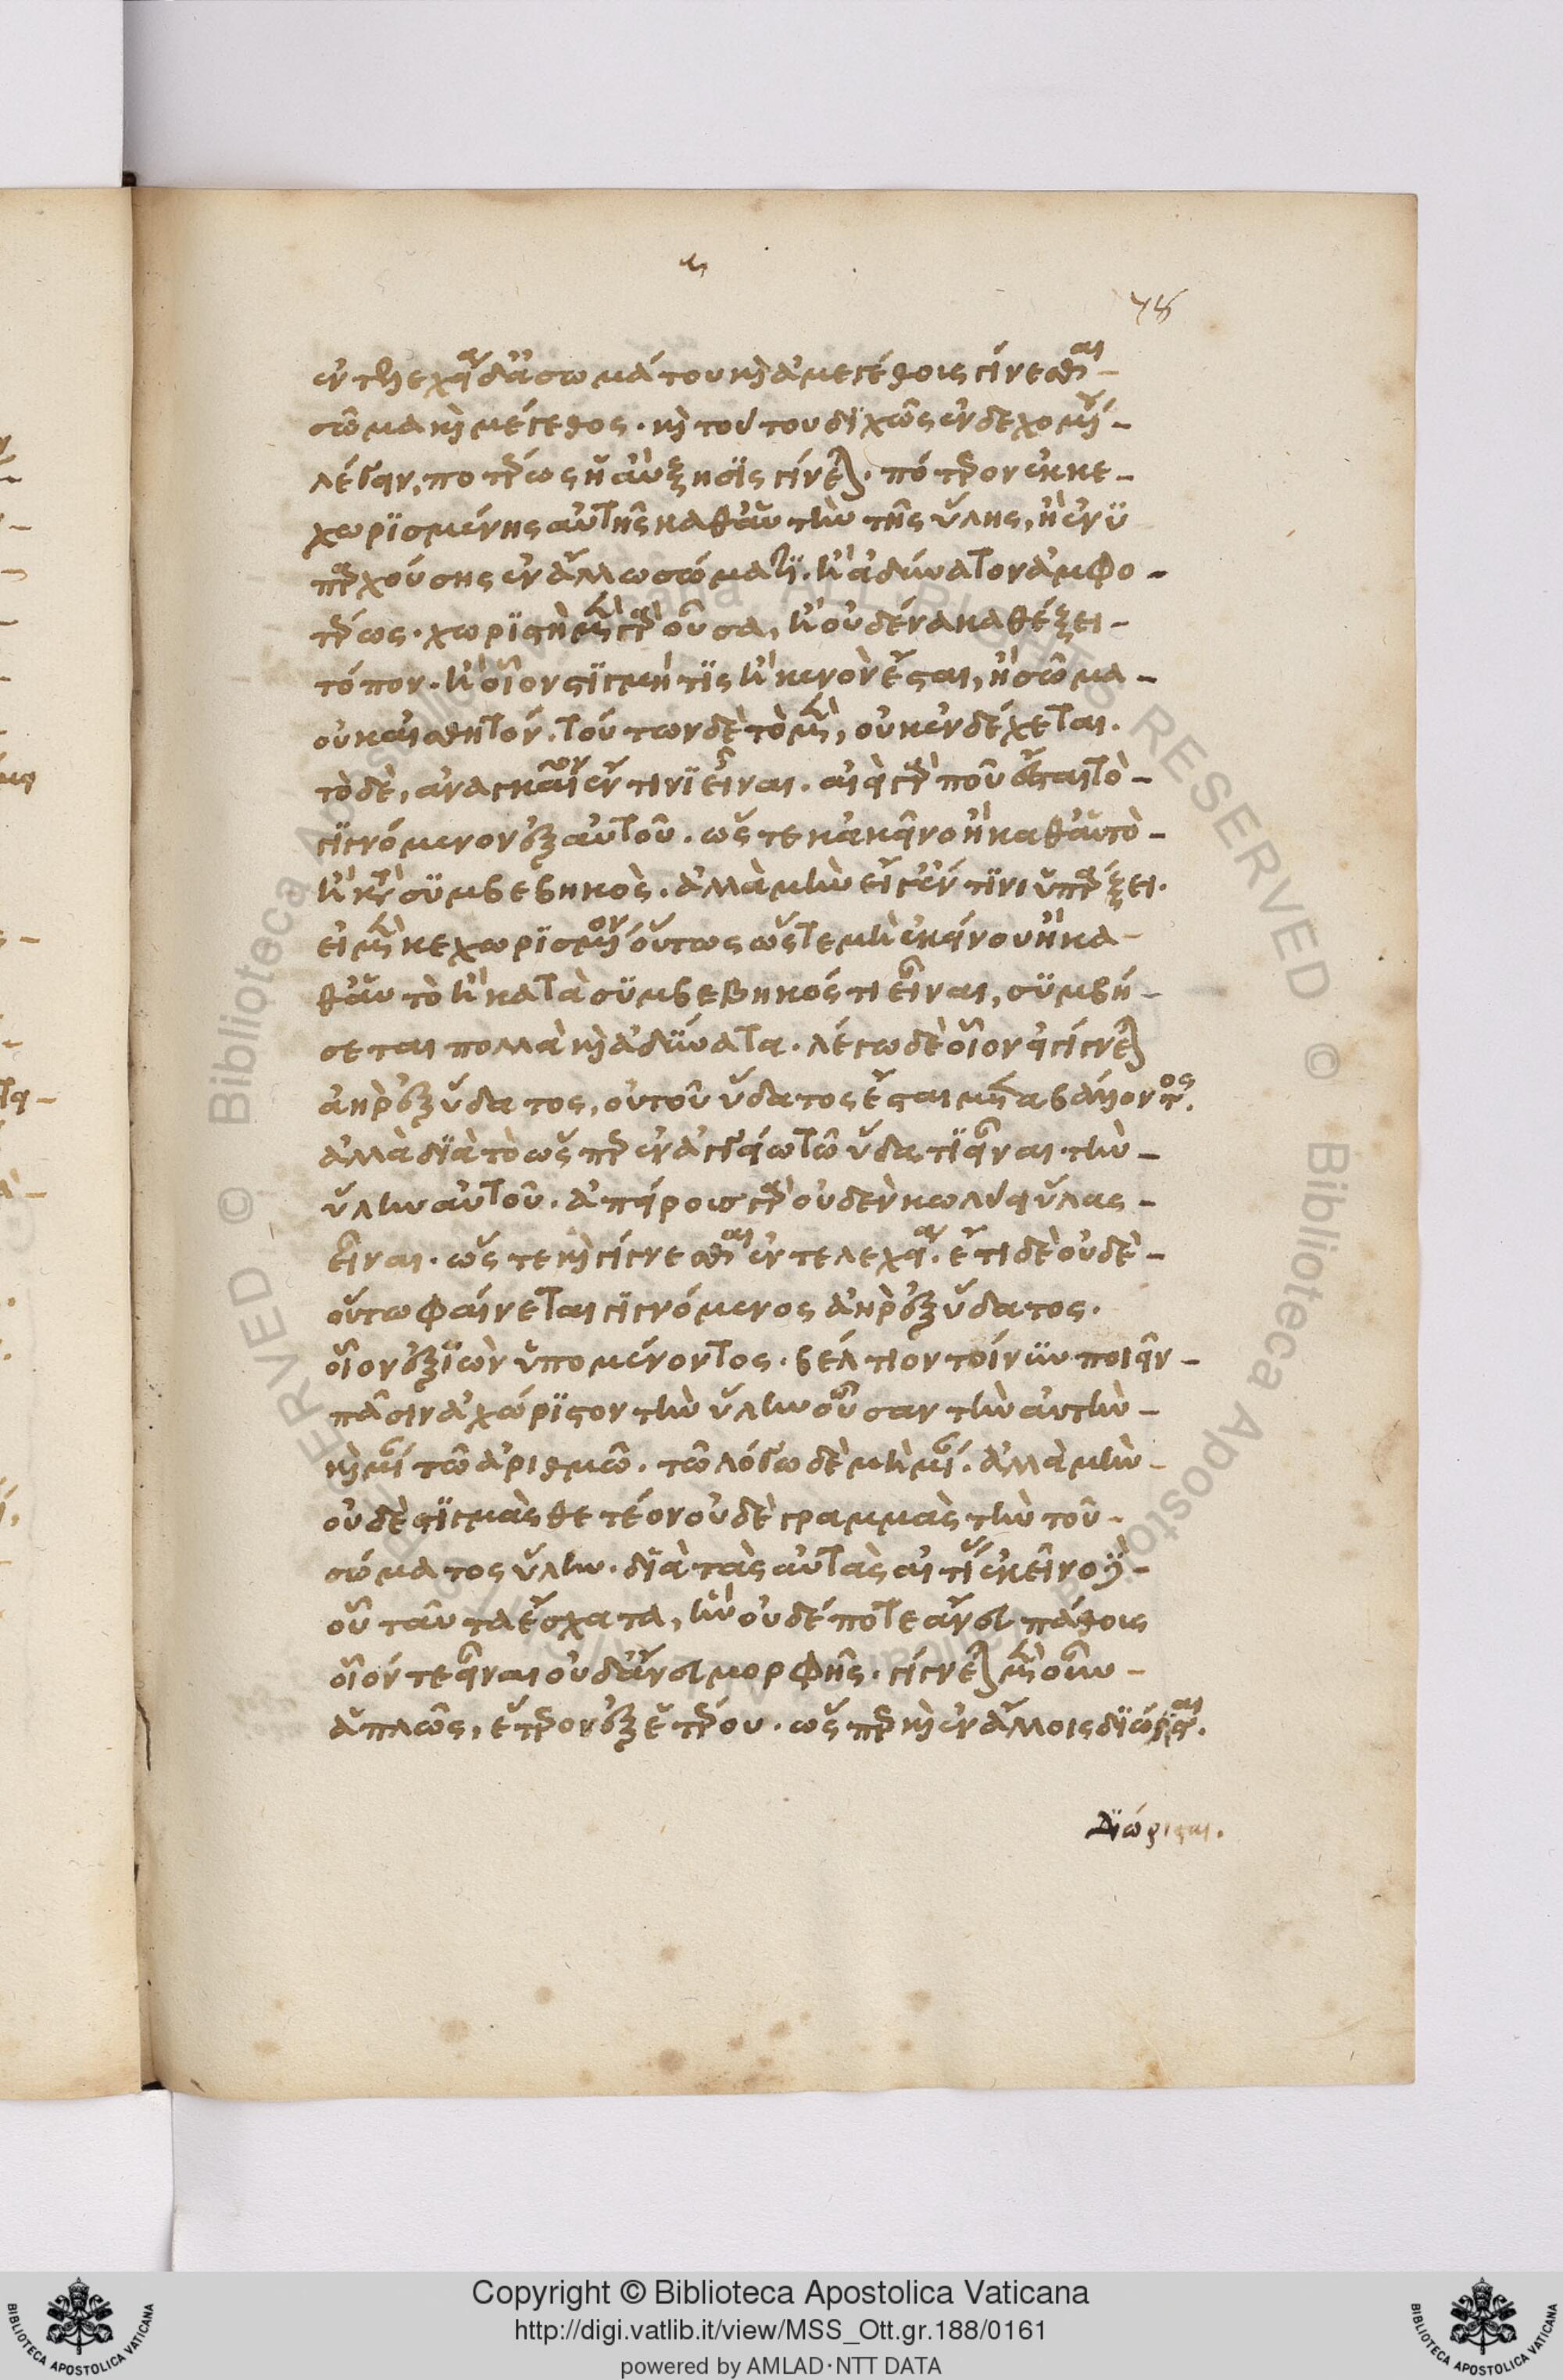 78
ἐντελεχείᾳ δὲ ἀσωμάτου καὶ ἀμεγέθους γίνεσθαι
σῶμα καὶ μέγεθος. καὶ τούτου διχῶς ἐνδεχομένου
λέγειν, ποτέρως ἡ αὔξησις γίνεται. πότερον ἐκ κε-
χωρισμένης αὐτῆς καθ' αὑτὴν τῆς ὕλης, ἢ ἐνυ
παρχούσης ἐν ἄλλω σώματι. ἢ ἀδύνατον ἀμφο-
τέρως. χωριστὴ μὲν γὰρ οὖσα, ἢ οὐδένα καθέξει
τόπον. ἢ οἷον στιγμή τις ἢ κενὸν ἔσται, ἢ σῶμα
οὐκ αἰσθητόν. τούτων δὲ τὸ μὲν, οὐκ ἐνδέχεται.
τὸ δὲ, ἀναγκαῖον ἔν τινι εἶναι. αἰεὶ γάρ που ἔσται τὸ
γιγνόμενον ἐξ αὐτοῦ. ὥστε κἀκεῖνο ἢ καθ' αὑτὸ
ἢ κατὰ συμβεβηκὸς. ἀλλὰ μὴν εἴ γ' ἔν τινι ὑπάρξει.
εἰ μὲν κεχωρισμένον οὕτως ὥστε μὴ ἐκείνου ἢ κα-
θ' αὑτὸ ἢ κατὰ συμβεβηκός τι εἶναι, συμβή-
σεται πολλὰ καὶ ἀδύνατα. λέγω δὲ οἷον εἰ γίγνεται
ἀὴρ ἐξ ὕδατος, οὐ τοῦ ὕδατος ἔσται μεταβάλλοντος.
ἀλλὰ διὰ τὸ ὥσπερ ἐν ἀγγείω τῶ ὕδατι εἶναι τὴν
ὕλην αὐτοῦ. ἀπείρους γὰρ οὐδὲν κωλύει ὕλας
εἶναι. ὥστε καὶ γίγνεσθαι ἐντελεχείᾳ. ἔτι δὲ οὐδὲ
οὕτω φαίνεται γιγνόμενος ἀὴρ ἐξ ὕδατος.
οἷον ἐξιὼν ὑπομένοντος. βέλτιον τοίνυν ποιεῖν
πᾶσιν ἀχώριστον τὴν ὕλην οὖσαν τὴν αὐτὴν
καὶ μίαν τῶ ἀριθμῶ. τῶ λόγω δὲ μὴ μίαν. ἀλλὰ μὴν
οὐδὲ στιγμὰς θετέον οὐδὲ γραμμὰς τὴν τοῦ
σώματος ὕλην. διὰ τὰς αὐτὰς αἰτίας ἐκεῖνο
οὗ ταῦτα ἔσχατα, ἣν οὐδέποτε ἄνευ πάθους
οἷόν τε εἶναι οὐδ' ἄνευ μορφῆς. γίγνεται μὲν οὖν
ἁπλῶς, ἕτερον ἐξ ἑτέρου. ὥσπερ καὶ ἐν ἄλλοις διώρισται.
Διώρισται.
Copyright © Biblioteca Apostolica Vaticana
http://digi.vatlib.it/view/MSS_Ott.gr.188/0161
powered by AMLAD·NTT DATA